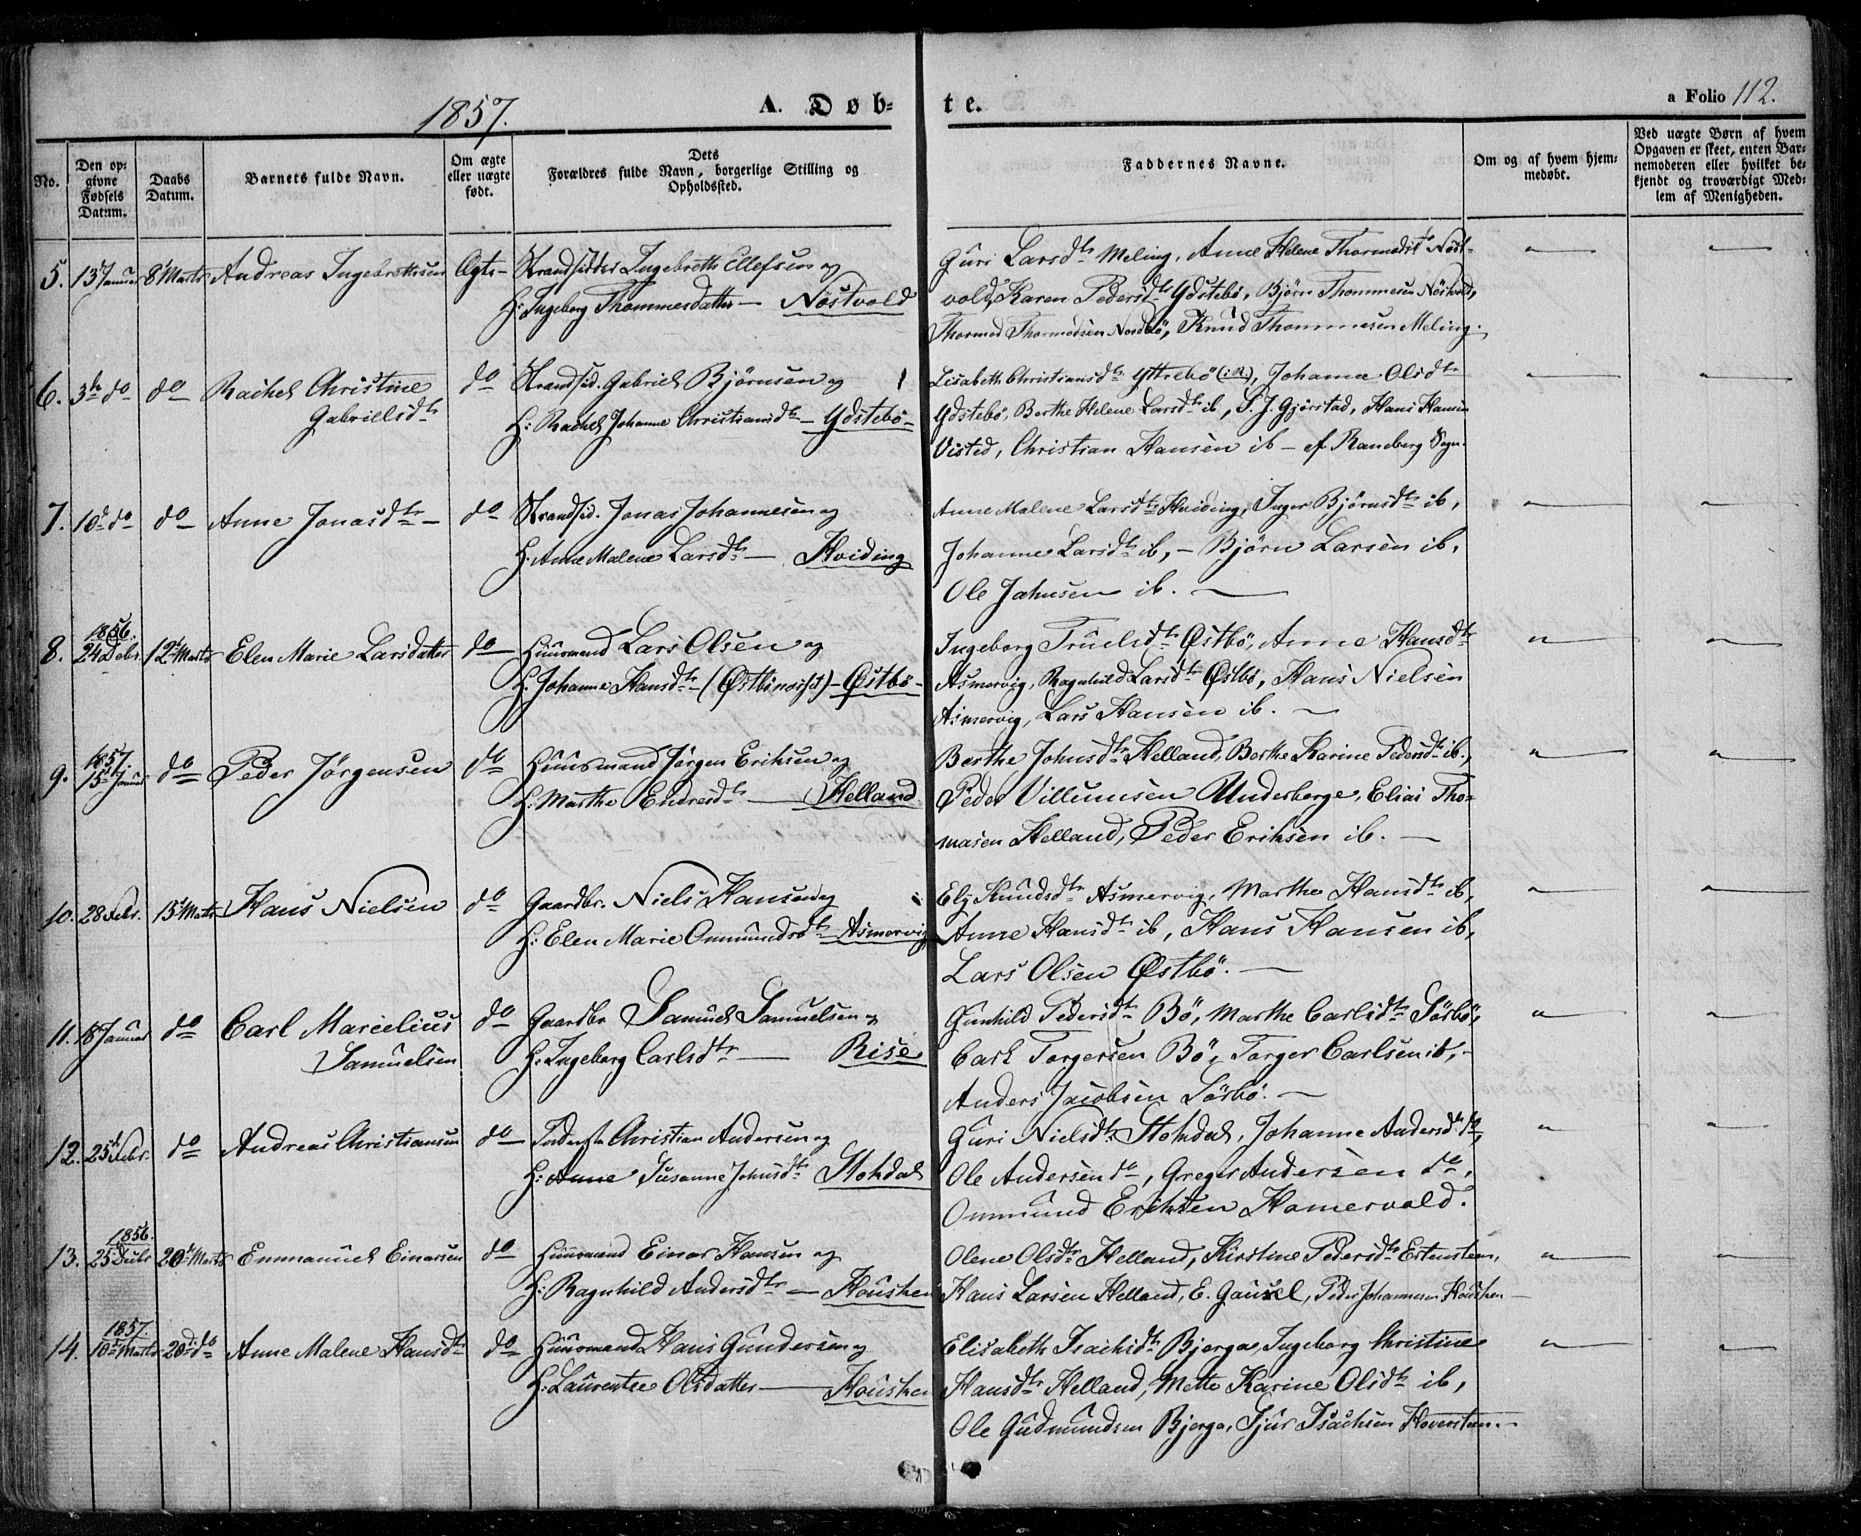 1857.
A. Døb-
te.
a Folio 112.
No.
Den op-
givne
Fødsels
Datum.
Daabs
Datum.
Barnets fulde Navn.
Om ægte
eller uægte
født.
Dets
Forældres fulde Navn, borgerlige Stilling og
Opholdssted.
Faddernes Navne.
Om og af hvem hjem-
medøbt.
Ved uægte Børn af hvem
Opgaven er skeet, enten Bar-
nemoderen eller hvilket be-
kjendt og troværdigt Med-
lem af Menigheden.
5. 13 Janua 8 Marts Andreas Ingebrethsen Ægte Strandsidder Ingebreth Ellefsen og
H: Ingeborg Thommesdatter — Nöstvold
Guri Larsdtr Meling, Anne Helene Thormodsdt Nöst-
vold, Karen Pedersdtr Ydstebö, Björn Thommesen Nöstvold,
Thormod Thormodsen Nordbö, Knud Thommesen Meling.
6. 3de do do Rachel Christine
Gabrielsdtr
do Strandsid. Gabriel Bjørnsen og
H: Rachel Johanne Christiansdtr — Ydstebö —
Lisabeth Christiansdtr Yttrebö, Johanne Olsdtr
Ydstebö, Berthe Helene Larsdtr ib, S. J. Gjörstad, Hans Hansen
Visted, Christian Hansen ib — af Randeberg Sogn.
7. 10d do do Anne Jonasdtr — do Strandsid. Jonas Johannesen og
H: Anne Malene Larsdtr — Hviding
Anne Malene Larsdtr Hviding, Inger Björnsdtr ib,
Johanne Larsdtr ib, — Bjørn Larsen ib,
Ole Jahnsen ib. —
8. 1856.
24 Debr 12 Marts Elen Marie Larsdatter do Huusmand Lars Olsen og
H. Johanne Hansdtr — Østbö —
Ingeborg Truelsdtr Østbö, Anne Hansdtr
Asmervig, Ragnhild Larsdtr Østbö, Hans Nielsen
Asmervig, Lars Hansen ib. —
9. 1857.
15 Januar do Peder Jørgensen do Huusmand Jørgen Eriksen og
H. Marthe Endresdtr — Helland
Berthe Johnsdtr Helland, Berthe Karine Pedersdtr ib.,
Peder Villumsen Underberge, Elias Tho-
masen Helland, Peder Eriksen ib. —
10. 28 Febr. 15 Marts Hans Nielsen do Gaardbr. Niels Hansen og
H: Elen Marie Ommundsdtr Asmervig
Elj Knudsdtr Asmervig, Marthe Hansdtr ib,
Anne Hansdtr ib, Hans Hansen ib,
Lars Olsen Østbö. —
11. 18 Januar do Carl Marcelius
Samuelsen
do Gaardbr Samuel Samuelsen og
H: Ingeborg Carlsdtr — Rise
Gunhild Pedersdtr Bö, Marthe Carlsdtr Sörbö,
Carl Torgersen Bö, Torger Carlsen ib, —
Anders Jacobsen Sörbö. —
12. 25 Febr. do Andreas Christiansen do Christian Andersen og
H: Anne Susanne Johnsdtr Stokdal
Guri Nielsdtr Stokdal, Johanne Andersdtr do,
Ole Andersen do, Greger Andersen do,
Ommund Eriksen Hamervold.
13. 1856.
25 Debr 20 Marts Emmanuel Einarsen do Huusmand Einar Hansen og
H. Ragnhild Andersdtr — Houshen
Olene Olsdtr Helland, Kirstine Pedersdtr Estensteen,
Hans Larsen Helland, E. Gausel, Peder Johannesen Houshen —
14. 1857.
10 Marts 20 do Anne Malene Hansdtr do Huusmand Hans Gundersen og
H: Laurentse Olsdatter — Houshen
Elisabeth Isachsdtr Bjerga, Ingeborg Christine
Hansdtr Helland, Mette Karine Olsdtr ib,
Ole Gudmundsen Bjerga, Sjur Isachsen Haversteen —